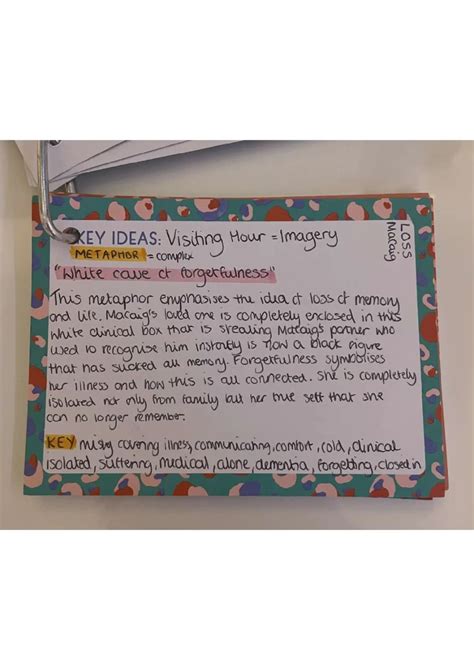 KEY IDEAS: Visiting Hour = Imagery
LOSS
Macaig
METAPHOR = complex
"White cave of forgetfulness"
This metaphor emphasises the idea of loss of memory
and life. Macaig's loved one is completely enclosed in this
white clinical box that is stealing Macaig's partner who
used to recognise him instantly is now a black figure
that has sucked all memory. Forgetfulness symbolises
her illness and how this is all connected. She is completely
isolated not only from family but her true self that she
can no longer remember.
KEY misty covering illness, communicating, comfort, cold, clinical
isolated, suffering, medical, alone, dementia, forgetting, closed in